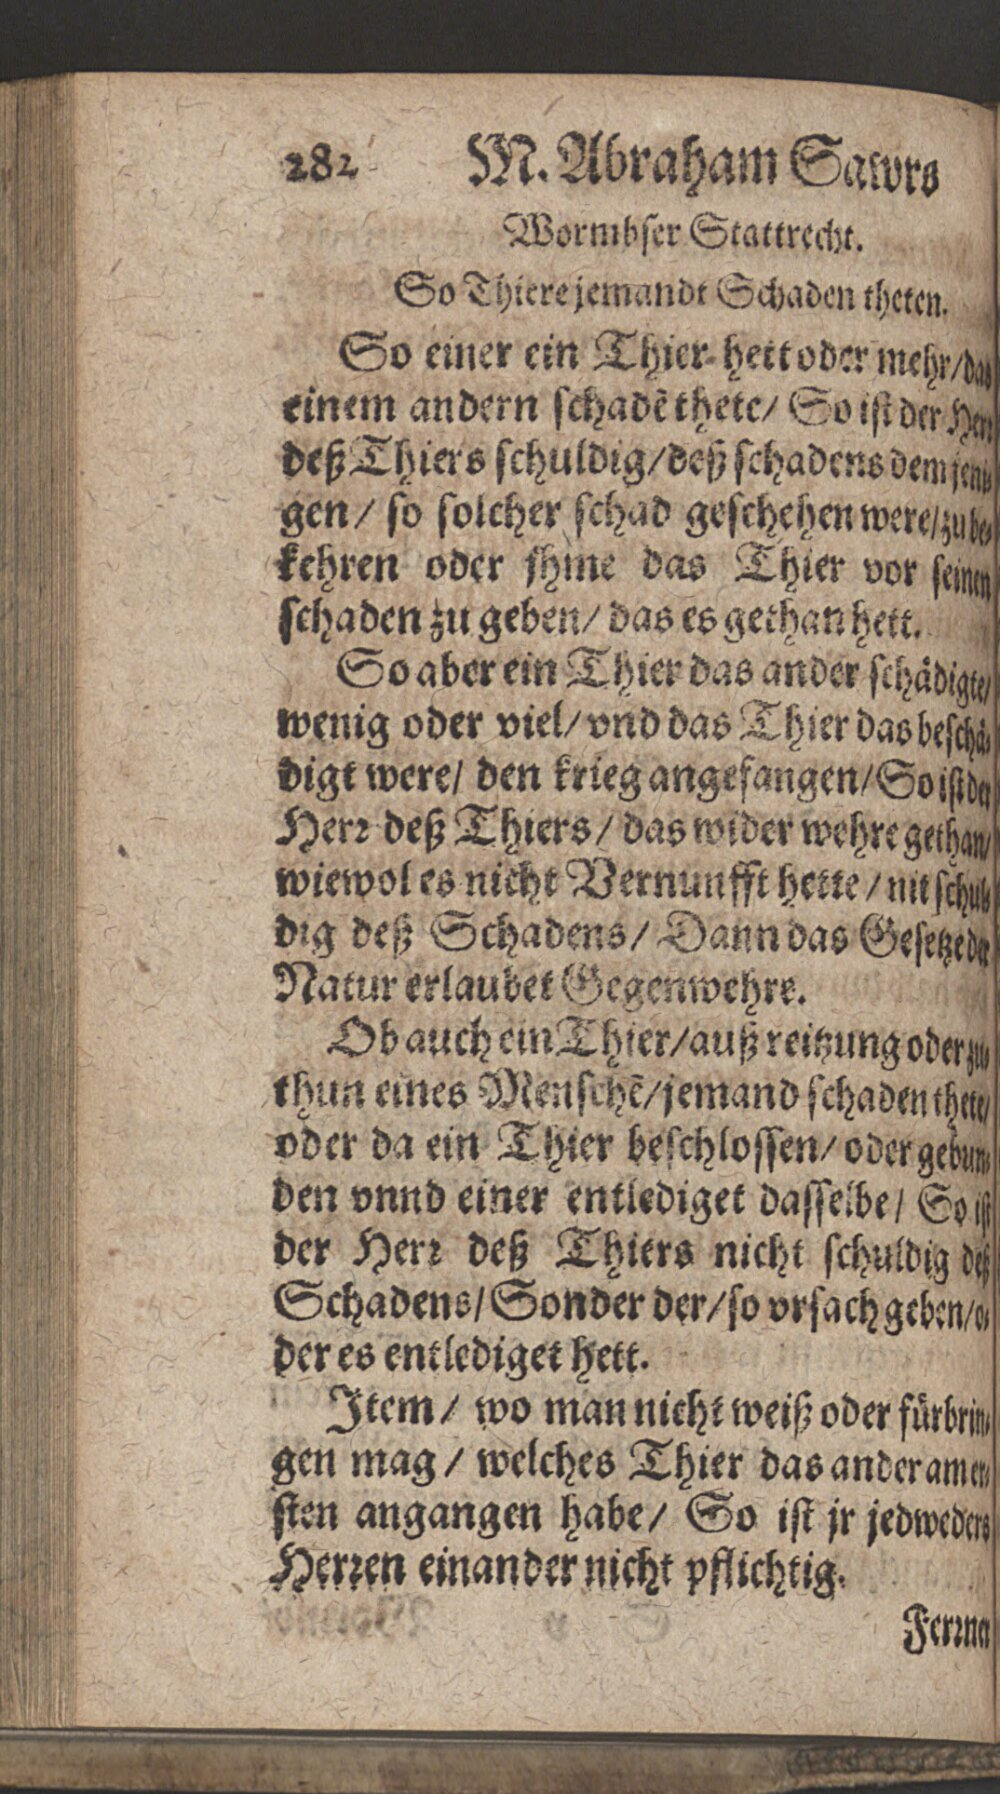 282 M. Abraham Sawrs
Wormbser Stattrecht.
So Thiere jemandt Schaden theten.
So einer ein Thier hett oder mehr / das
einem andern schadẽ thete / So ist der Herr
deß Thiers schuldig / deß schadens dem jeni-
gen / so solcher schad geschehen were / zu be-
kehren oder jhme das Thier vor seinen
schaden zu geben / das es gethan hett.
So aber ein Thier das ander schädigte /
wenig oder viel / vnd das Thier das beschä-
digt were / den krieg angefangen / So ist der
Herr deß Thiers / das wider wehre gethan /
wiewol es nicht Vernunfft hette / nit schul-
dig deß Schadens / Dann das Gesetze der
Natur erlaubet Gegenwehre.
Ob auch ein Thier / auß reitzung oder zu-
thun eines Menschẽ / jemand schaden thete /
oder da ein Thier beschlossen / oder gebun-
den vnnd einer entlediget dasselbe / So ist
der Herr deß Thiers nicht schuldig deß
Schadens / Sonder der / so vrsach geben / o-
der es entlediget hett.
Item / wo man nicht weiß oder fürbrin-
gen mag / welches Thier das ander am er-
sten angangen habe / So ist jr jedweders
Herren einander nicht pflichtig.
Ferrner